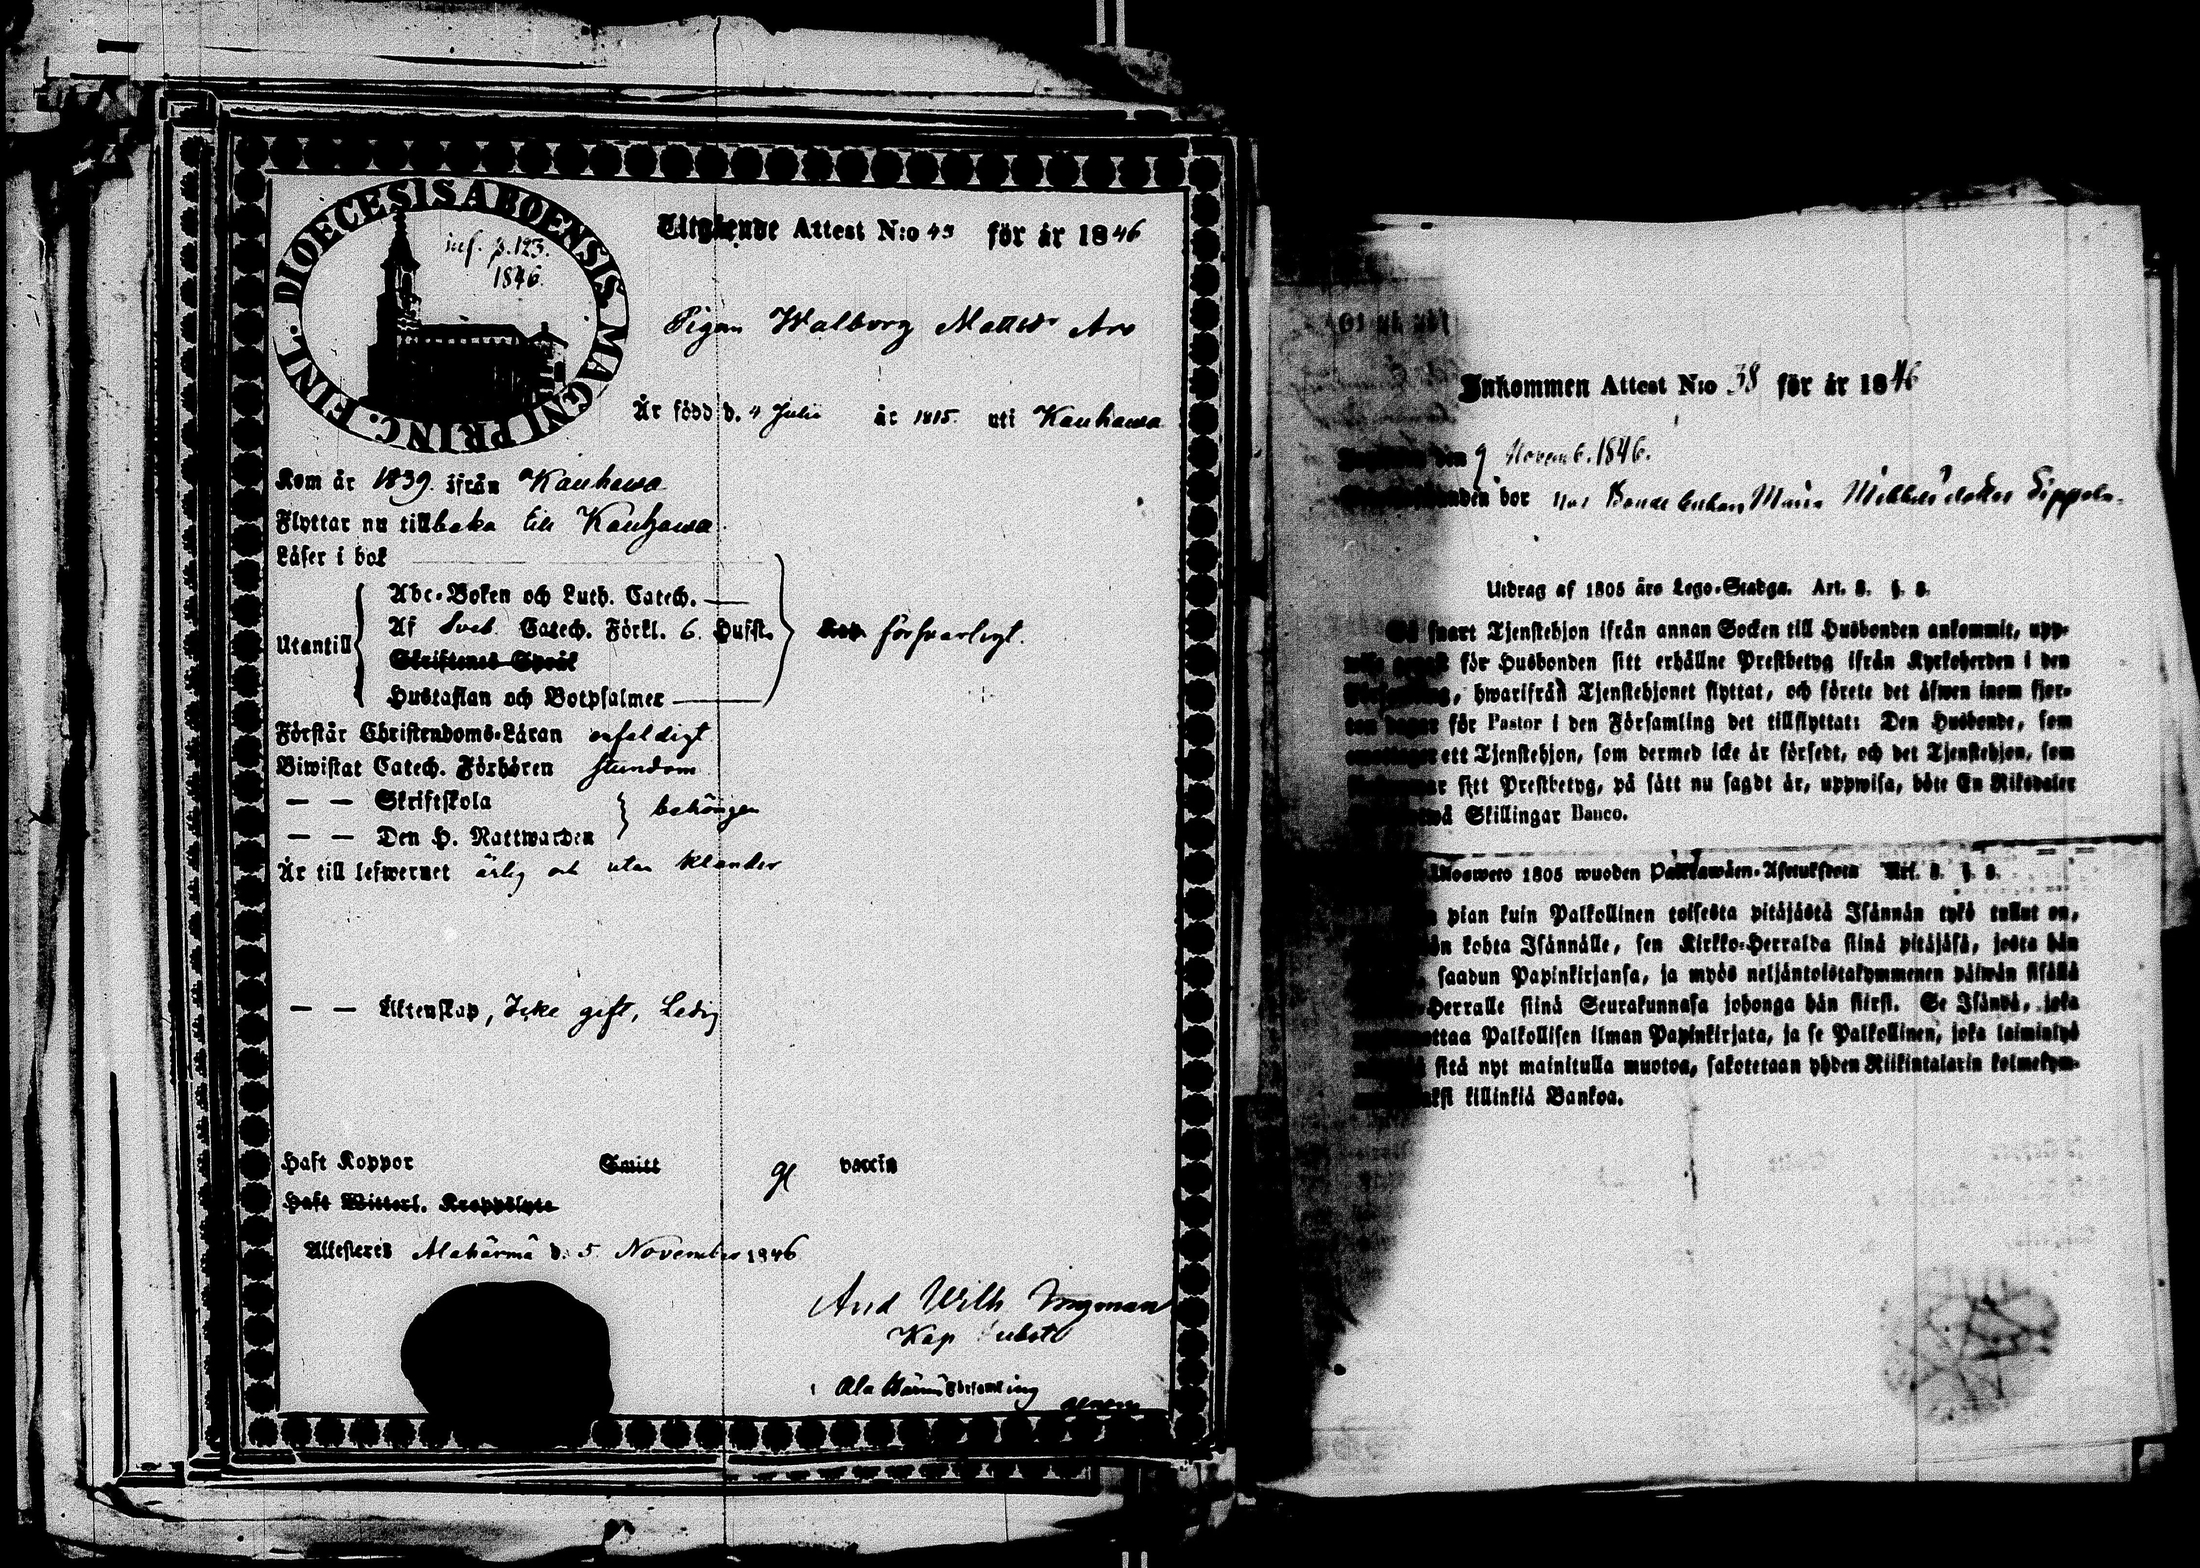 DIOECESIS ABOENSIS MAGNI PRINC. FINL.
inf. p. 123.
1846.
Utgående Attest N:o 43 för år 1846
Pigan Walborg Mattsdr
Är född d. 4 Julii år 1815. uti Kauhawa
Kom år 1839. ifrån Kauhawa
Flyttar nu tillbaka till Kauhawa.
Läser i bok
Utantill
Abc-Boken och Luth. Catech.
Af Sveb. Catech. Förkl. 6. Hufst.
Skriftenes Språk
Hustaflan och Botpsalmer
försvarligt.
Förstår Christendoms-Läran enfaldigt
Biwistat Catech. Förhören stundom
— — Skriftskola
— — Den H. Nattwarden
behörigen
Är till lefwernet ärlig och utan klander
— — Äktenskap, Icke gift, Ledig
Haft Koppor Smitt vaccin
Haft Witterl. Kroppslyte
Attesteras Alahärmä d. 5 November 1846
And Wilh Ingman
Kap
Ala Härmä Församling
Inkommen Attest N:o 38 för år 1846
den 9 Novemb. 1846.
bor hos Bonde Enkan Maria
Utdrag af 1805 års Lego-Stadga. Art. 8. §. 8.
Så snart Tjenstehjon ifrån annan Socken till Husbonden ankommit, upp-
för Husbonden sitt erhållne Prestbetyg ifrån Kyrkoherden i den
hwarifrån Tjenstehjonet flyttat, och förete det äfwen inom fjor-
ton dagar för Pastor i den Församling det tillflyttat: Den Husbonde, som
ett Tjenstehjon, som dermed icke är försedt, och det Tjenstehjon, som
sitt Prestbetyg, på sätt nu sagdt är, uppwisa, böte En Riksdaler
Skillingar Banco.
1805 wuoden Palkkawäen-Asetuksesta Art. 8. §. 8.
pian kuin Palkollinen toisesta pitäjästä Isännän tykö tullut on,
kohta Isännälle, sen Kirkko-Herralda siinä pitäjäsä, josta hän
saadun Papinkirjansa, ja myös neljäntoistakymmenen päiwän sisällä
Herralle siinä Seurakunnasa johonga hän siirsi. Se Isändä, joka
ottaa Palkollisen ilman Papinkirjata, ja se Palkollinen, joka laiminlyö
sitä nyt mainitulla muotoa, sakotetaan yhden Riikintalarin kolmekym-
killinkiä Bankoa.